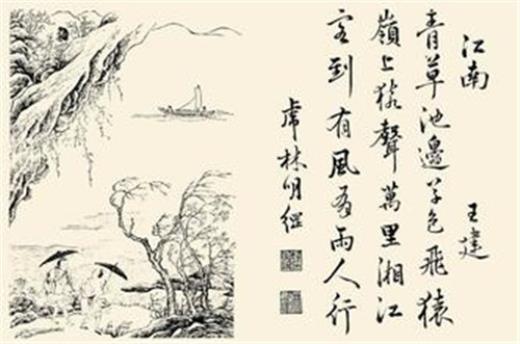 江南
王建
青草池邊草色飛猿
嶺上猿聲萬里湘江
客到有風有雨人行
虎林明繼